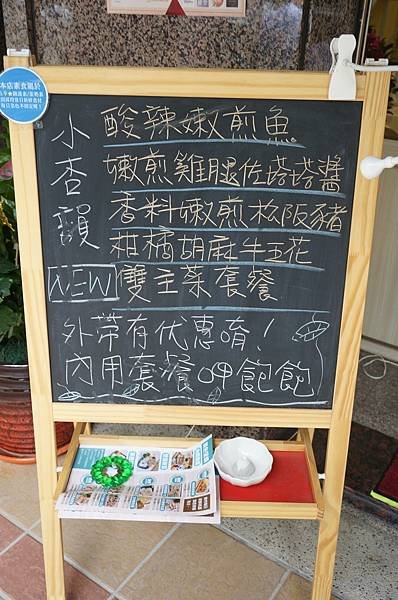 本店素食屬於
小杏韻
酸辣嫩煎魚
嫩煎雞腿佐塔塔醬
香料嫩煎松阪豬
柑橘胡麻牛五花
NEW 雙主菜套餐
外帶有优惠唷!
內用套餐呷飽飽